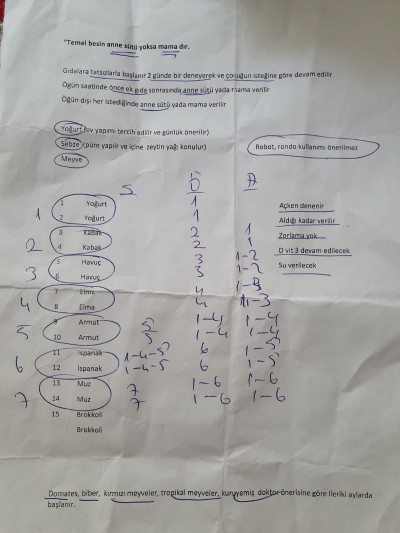 "Temel besin anne sütü yoksa mama dır.
Gıdalara tatsızlarla başlanır 2 günde bir deneyerek ve çocuğun isteğine göre devam edilir
Öğün saatinde önce ek gıda sonrasında anne sütü yada mama verilir
Öğün dışı her istediğinde anne sütü yada mama verilir
Yoğurt (ev yapımı tercih edilir ve günlük önerilir)
Sebze (püre yapılır ve içine zeytin yağı konulur)
Robot, rondo kullanımı önerilmez
Meyve
S Ö A
1 1 Yoğurt 1
2 Yoğurt 1
2 3 Kabak 2 1
4 Kabak 2 1
3 5 Havuç 3 1-2
6 Havuç 3 1-2
4 7 Elma 4 1-3
8 Elma 4 1-3
5 9 Armut 5 1-4 1-4
10 Armut 5 1-4 1-4
6 11 Ispanak 1-4-5 6 1-5
12 Ispanak 1-4-5 6 1-5
7 13 Muz 7 1-6 1-6
14 Muz 7 1-6 1-6
15 Brokkoli
Brokkoli
Açken denenir
Aldığı kadar verilir
Zorlama yok
D vit 3 devam edilecek
Su verilecek
Domates, biber, kırmızı meyveler, tropikal meyveler, kuruyemiş doktor önerisine göre ileriki aylarda
başlanır.